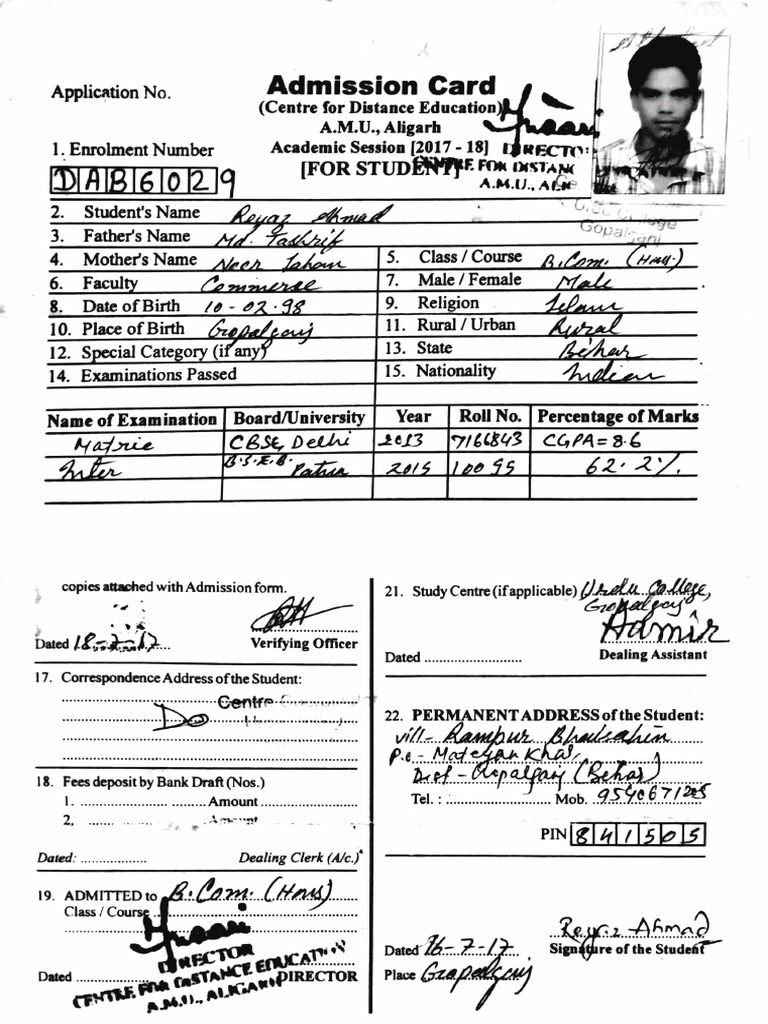 Application No.
Admission Card
(Centre for Distance Education)
A.M.U., Aligarh
1. Enrolment Number
Academic Session [2017 - 18]
DIRECTOR
[FOR STUDENT]
CENTRE FOR DISTANC
A.M.U., ALIG
DAB6029
College
Gopalganj
2. Student's Name Reyaz Ahmad
3. Father's Name Md. Tashrif
4. Mother's Name Noor Jahan 5. Class / Course B.Com. (Hons.)
6. Faculty Commerse 7. Male / Female Male
8. Date of Birth 10-02-98 9. Religion Islam
10. Place of Birth Gopalganj 11. Rural / Urban Rural
12. Special Category (if any) 13. State Behar
14. Examinations Passed 15. Nationality Indian
Name of Examination Board/University Year Roll No. Percentage of Marks
Matric CBSE, Delhi 2013 7166843 CGPA=8.6
Inter B.S.E.B. Patna 2015 10095 62.2%
copies attached with Admission form.
Dated 18-7-17
Verifying Officer
17. Correspondence Address of the Student:
Centre
Do
18. Fees deposit by Bank Draft (Nos.)
1. Amount
2, Amount
Dated: Dealing Clerk (A/c.)
19. ADMITTED to B.Com. (Hons)
Class / Course
DIRECTOR
CENTRE FOR DISTANCE EDUCATION
A.M.U., ALIGARH
Dated DIRECTOR
21. Study Centre (if applicable) Urdu College,
Gopalganj
Dated Dealing Assistant
22. PERMANENT ADDRESS of the Student:
vill- Rampur
P.o- Khas,
Dist- Gopalganj (Behar)
Tel. : Mob. 9540671205
PIN 841505
Reyaz Ahmad
Dated 16-7-17 Signature of the Student
Place Gopalganj